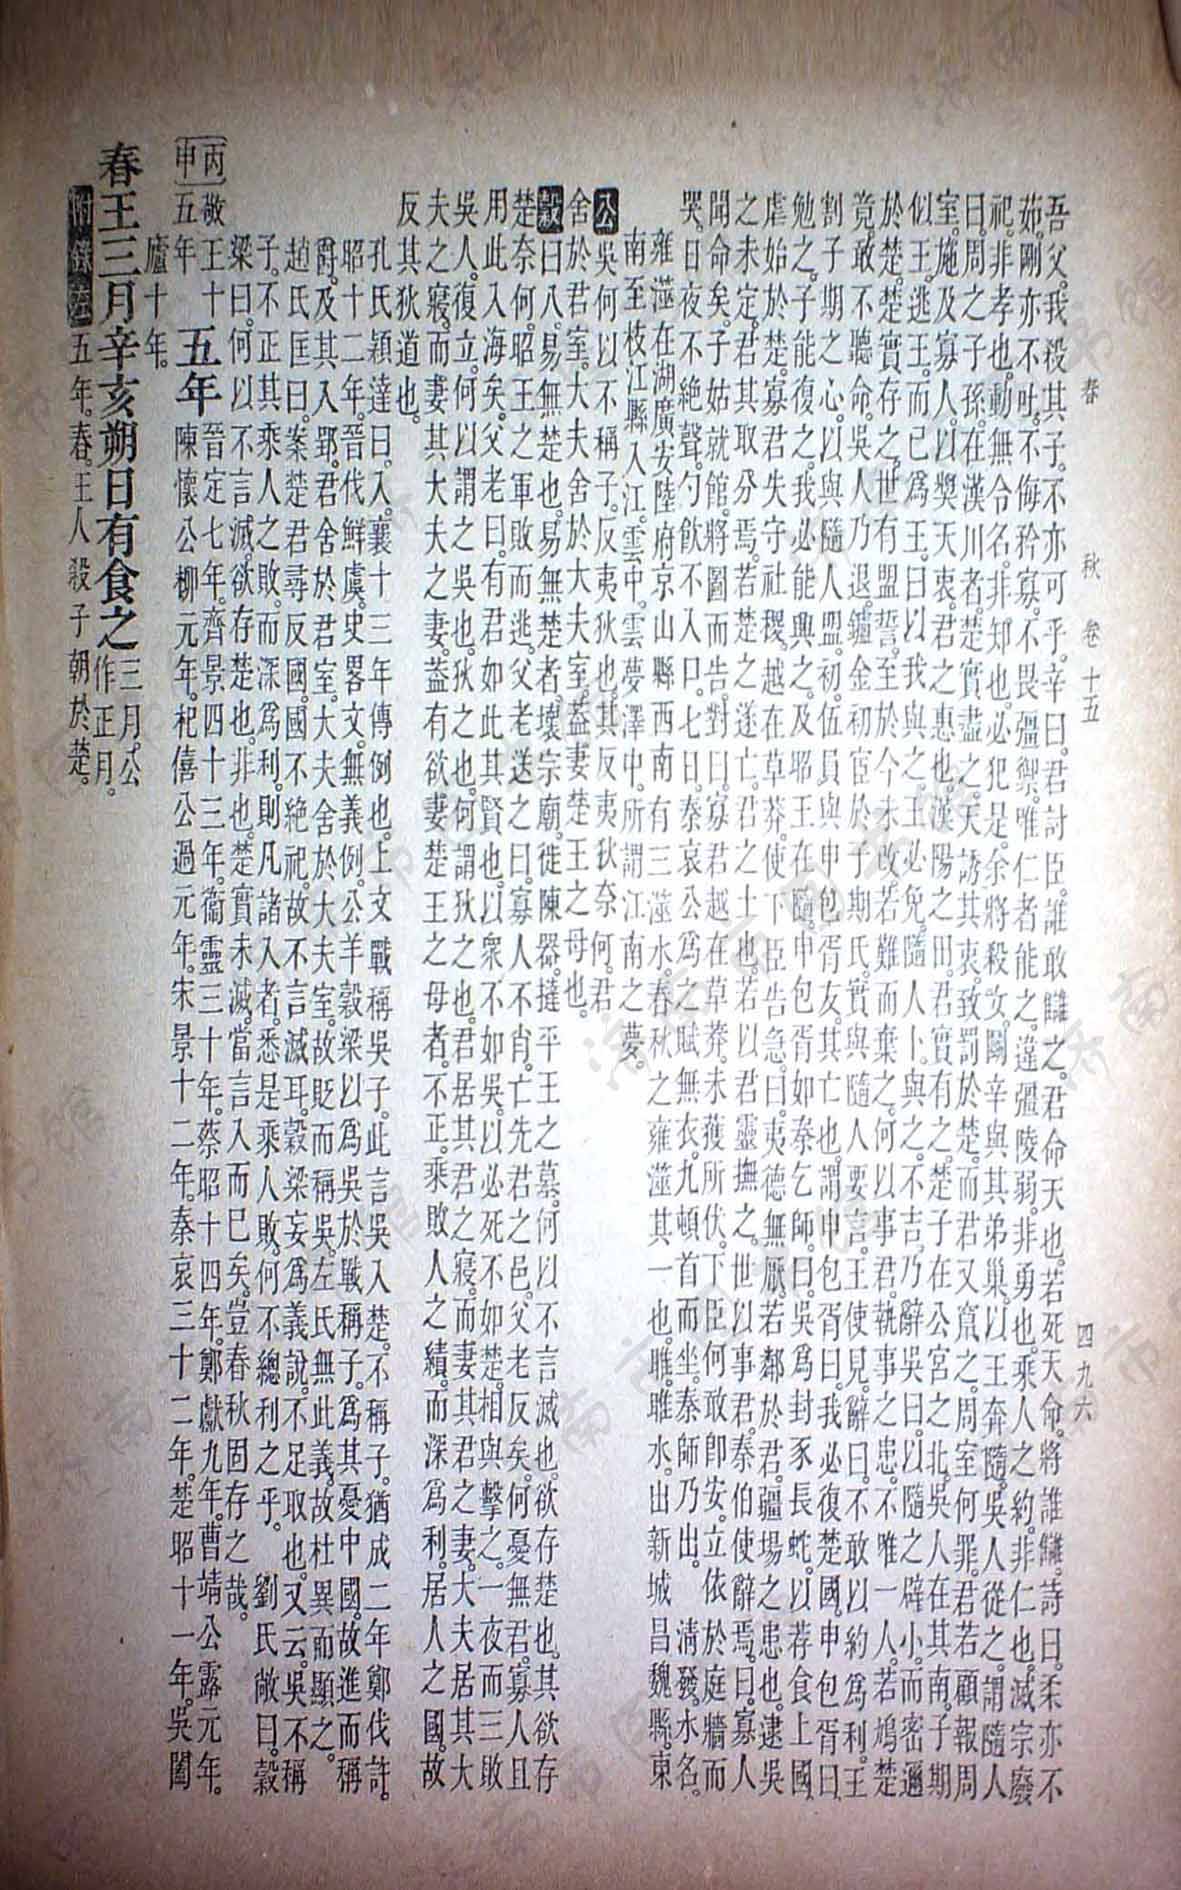 春　秋　卷十五　四九六
吾父。我殺其子。不亦可乎。辛曰。君討臣。誰敢讎之。君命天也。若死天命。將誰讎。詩曰。柔亦不
茹。剛亦不吐。不侮矜寡。不畏彊禦。唯仁者能之。違彊陵弱。非勇也。乘人之約。非仁也。滅宗廢
祀。非孝也。動無令名。非知也。必犯是。余將殺女。鬭辛與其弟巢。以王奔隨。吳人從之。謂隨人
曰。周之子孫。在漢川者。楚實盡之。天誘其衷。致罰於楚。而君又竄之。周室何罪。君若顧報周
室。施及寡人。以奬天衷。君之惠也。漢陽之田。君實有之。楚子在公宮之北。吳人在其南。子期
似王。逃王。而已爲王。曰以我與之。王必免。隨人卜與之。不吉。乃辭吳曰。以隨之辟小。而密邇
於楚。楚實存之。世有盟誓。至於今未改。若難而棄之。何以事君。執事之患。不唯一人。若鳩楚
竟。敢不聽命。吳人乃退。鑪金初宦於子期氏。實與隨人要言。王使見。辭曰。不敢以約爲利。王
割子期之心。以與隨人盟。初伍員與申包胥友。其亡也。謂申包胥曰。我必復楚國。申包胥曰
勉之。子能復之。我必能興之。及昭王在隨。申包胥如秦乞師。曰。吳爲封豕長蛇。以荐食上國
虐始於楚。寡君失守社稷。越在草莽。使下臣告急。曰。夷德無厭。若鄰於君。疆場之患也。逮吳
之未定。君其取分焉。若楚之遂亡。君之土也。若以君靈撫之。世以事君。秦伯使辭焉。曰。寡人
聞命矣。子姑就館。將圖而告。對曰。寡君越在草莽。未獲所伏。下臣何敢卽安。立依於庭牆而
哭。日夜不絕聲。勺飮不入口。七日。秦哀公爲之賦無衣。九頓首而坐。秦師乃出。　淸發。水名。
雍澨在湖廣安陸府京山縣西南。有三澨水。春秋之雍澨其一也。睢。睢水。出新城昌魏縣。東
南至枝江縣入江。雲中。雲夢澤中。所謂江南之夢。
公　吳何以不稱子。反夷狄也。其反夷狄奈何。君
舍於君室。大夫舍於大夫室。蓋妻楚王之母也。
穀　曰入。易無楚也。易無楚者。壞宗廟。徙陳器。撻平王之墓。何以不言滅也。欲存楚也。其欲存
楚奈何。昭王之軍敗而逃。父老送之。曰。寡人不肖。亡先君之邑。父老反矣。何憂無君。寡人且
用此入海矣。父老曰。有君如此其賢也。以衆不如吳。以必死不如楚。相與擊之。一夜而三敗
吳人。復立。何以謂之吳也。狄之也。何謂狄之也。君居其君之寢。而妻其君之妻。大夫居其大
夫之寢。而妻其大夫之妻。蓋有欲妻楚王之母者。不正。乘敗人之績。而深爲利。居人之國。故
反其狄道也。
孔氏穎達曰。入。襄十三年傳例也。上文戰稱吳子。此言吳入楚。不稱子。猶成二年鄭伐許。
昭十二年。晉伐鮮虞。史畧文。無義例。公羊穀梁以爲吳於戰稱子。爲其憂中國。故進而稱
爵。及其入郢。君舍於君室。大夫舍於大夫室。故貶而稱吳。左氏無此義。故杜異而顯之。
趙氏匡曰。案楚君尋反國。國不絕祀。故不言滅耳。穀梁妄爲義說。不足取也。又云。吳不稱
子。不正其乘人之敗。而深爲利。則凡諸入者。悉是乘人敗。何不總利之乎。　劉氏敞曰。穀
梁曰。何以不言滅。欲存楚也。非也。楚實未滅。當言入而已矣。豈春秋固存之哉。
丙申　敬王十五年　五年　晉定七年。齊景四十三年。衞靈三十年。蔡昭十四年。鄭獻九年。曹靖公露元年。
陳懷公柳元年。杞僖公過元年。宋景十二年。秦哀三十二年。楚昭十一年。吳闔
廬十年。
春王三月辛亥朔日有食之　三月。公作正月。
附錄左　五年。春。王人殺子朝於楚。